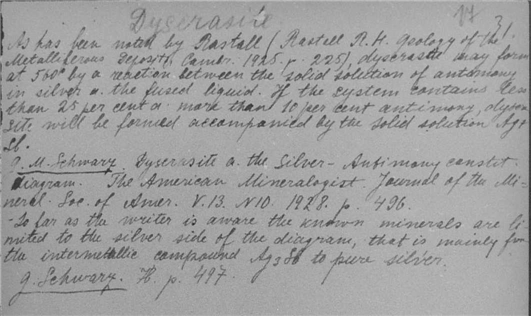 Dyscrasite 17
3)
As has been noted by Rastall (Rastall R.H. Geology of the
Metalliferous Deposits, Cambr. 1925. p. 225), dyscrasite may form
at 560° by a reaction between the solid solution of antimony
in silver a. the fused liquid. If the system contains less
than 25 per cent a. more than 10 per cent antimony, dyscra
site will be formed accompanied by the solid solution Ag+
Sb.
G. M. Schwarz. Dyscrasite a. the Silver-Antimony constit.
Diagram. The American Mineralogist. Journal of the Mi-
neral. Soc. of Amer. V.13. N10. 1928. p. 496.
-So far as the writer is aware the known minerals are li-
mited to the silver side of the diagram, that is mainly from
the intermetallic compound Ag3Sb to pure silver.
G. Schwarz. p. 497.